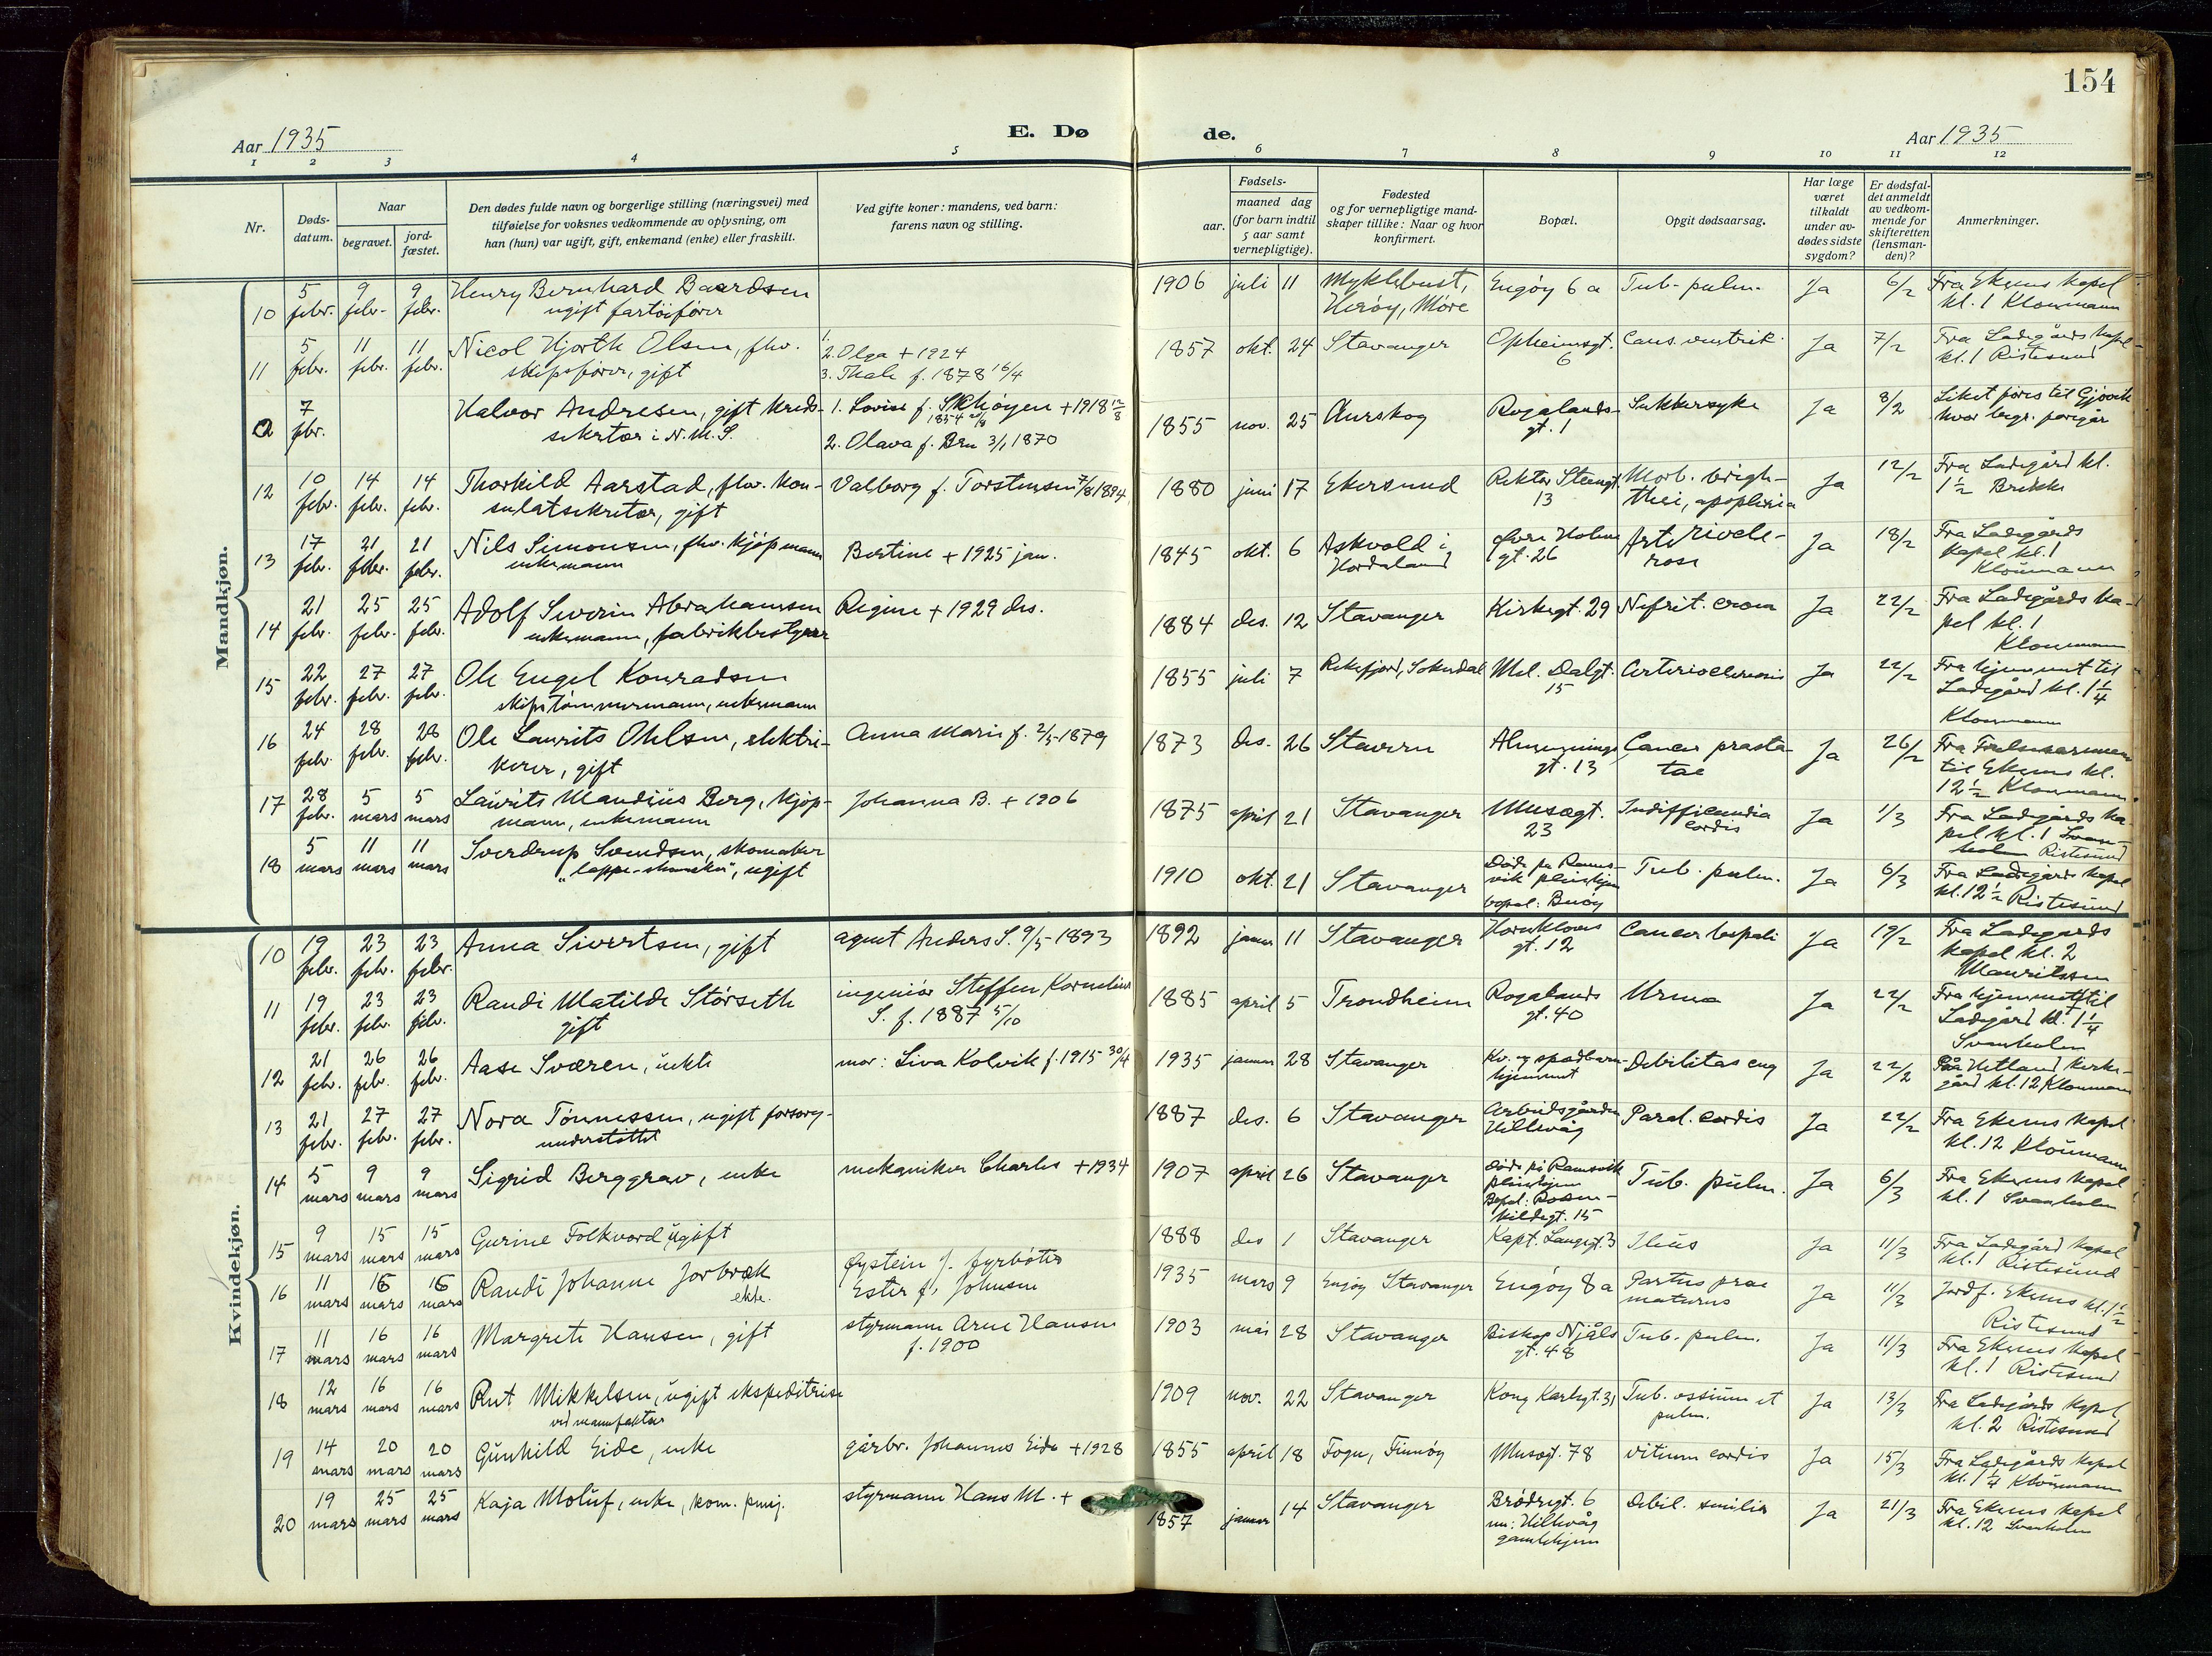 154
Aar 1935
E. Døde.
Aar 1935
1 2 3 4 5 6 7 8 9 10 11 12
Nr.
Døds-datum.
Naar
begravet.
jord-fæstet.
Den dødes fulde navn og borgerlige stilling (næringsvei) med
tilføielse for voksnes vedkommende av oplysning, om
han (hun) var ugift, gift, enkemand (enke) eller fraskilt.
Ved gifte koner: mandens, ved barn:
farens navn og stilling.
Fødsels-
aar.
maaned dag
(for barn indtil
5 aar samt
vernepligtige).
Fødested
og for vernepligtige mand-
skaper tillike: Naar og hvor
konfirmert.
Bopæl.
Opgit dødsaarsag.
Har læge
været
tilkaldt
under av-
dødes sidste
sygdom?
Er dødsfal-
det anmeldt
av vedkom-
mende for
skifteretten
(lensman-
den)?
Anmerkninger.
Mandkjøn.
10 5 febr. 9 febr. 9 febr. Henry Bernhard Baardsen ugift fartøifører 1906 juli 11 Myklebust, Herøy, Møre Engøy 6 a Tub. pulm. Ja 6/2 Fra Ekenes kapel kl. 1 Kloumann
11 5 febr. 11 febr. 11 febr. Nicol Hjorth Olsen, fhv. skipsfører, gift 1. 2. Olga + 1924 3. Thale f. 1878 16/4 1857 okt. 24 Stavanger Opheimsgt. 6 Canc. ventrik. Ja 7/2 Fra Ladegårds kapel kl. 1 Ristesund
7 febr. Halvor Andresen, gift kreds-sekretær i N. M. S. 1. Lovise f. + 1918 2. Olava f. Bru 3/1 1870 1855 nov. 25 Aurskog Rogalands-gt. 1 Sukkersyke Ja 8/2 Liket føres til Gjøvik hvor begr. foregår
12 10 febr. 14 febr. 14 febr. Thorkild Aarstad, fhv. kon-sulatsekretær, gift Valborg f. Torstensen 7/8 1894 1880 juni 17 Ekersund Rektor Steensgt. 13 Morb. brigh-thei, apoplexia Ja 12/2 Fra Ladegård kl. 1 1/2 Brekke
13 17 febr. 21 febr. 21 febr. Nils Simonsen, fhv. kjøpmann enkemann Bertine + 1925 jan. 1845 okt. 6 Askvold i Hordaland Øvre Holme gt. 26 Arteriocle-rose Ja 18/2 Fra Ladegårds kapel kl. 1 Kloumann
14 21 febr. 25 febr. 25 febr. Adolf Severin Abrahamsen enkemann, fabrikbestyrer Regine + 1929 des. 1884 des. 12 Stavanger Kirkegt. 29 Nefrit. cron Ja 22/2 Fra Ladegårds ka-pel kl. 1 Kloumann
15 22 febr. 27 febr. 27 febr. Ole Engel Konradsen skipstømmermann, enkemann 1855 juli 7 Rekefjord, Sokndal Mel. Dalgt. 15 Arterioclerosis Ja 22/2 Fra hjemmet til Ladegård kl. 1 1/4 Kloumann
16 24 febr. 28 febr. 28 febr. Ole Laurits Ohlsen, elektri-kerer, gift Anna Marie f. 2/5-1879 1873 des. 26 Stavern Almennings gt. 13 Cancer prasta-tae Ja 26/2 Fra Frelsesarmeen til Ekenes kl. 12 1/2 Kloumann
17 28 febr. 5 mars 5 mars Laurits Mandius Berg, kjøp-mann, enkemann Johanna B. + 1906 1875 april 21 Stavanger Musægt. 23 Indifficientia cordis Ja 1/3 Fra Ladegårds ka-pel kl. 1 Ristesund
18 5 mars 11 mars 11 mars Sverdrup Svendsen, skomaker "lappe-skomaker", ugift 1910 okt. 21 Stavanger Døde på Rams-vik pleiehjem bopæl: Buøy Tub. pulm. Ja 6/3 Fra Ladegårds kapel kl. 12 1/2 Ristesund
Kvindekjøn.
10 19 febr. 23 febr. 23 febr. Anna Sivertsen, gift agent Anders S. 9/5-1893 1892 januar 11 Stavanger Hornkloves gt. 12 Cancer Ja 19/2 Fra Ladegårds kapel kl. 2 Mauritzsen
11 19 febr. 23 febr. 23 febr. Randi Matilde Størseth gift ingeniør Steffen Kornelius S. f. 1887 5/10 1885 april 5 Trondheim Rogalands gt. 40 Urma Ja 22/2 Fra hjemmet til Ladegård kl. 1 1/4 Svanholm
12 21 febr. 26 febr. 26 febr. Aase Sværen, uekte mor: Liva Kolvik f. 1915 30/4 1935 januar 28 Stavanger Kv. og spædbarn-hjemmet Debilitas cng Ja 22/2 Paa Hetland kirke-gård kl. 12 Kloumann
13 21 febr. 27 febr. 27 febr. Nora Tønnessen, ugift forsorg-understøttet 1887 des. 6 Stavanger Arbeidsgården Hillevåg Paral. cordis Ja 22/2 Fra Ekenes kapel kl. 12 Kloumann
14 5 mars 9 mars 9 mars Sigrid Berggrav, enke mekaniker Charles + 1934 1907 april 26 Stavanger Døde på Ramsvik pleiehjem Bopæl: Rosen-kildegt. 15 Tub. pulm. Ja 6/3 Fra Ekenes kapel kl. 1 Svanholm
15 9 mars 15 mars 15 mars Gurine Folkvord, ugift 1888 des 1 Stavanger Kapt. Langegt. 3 Ileus Ja 11/3 Fra Ladegård kapel kl. 1 Ristesund
16 11 mars 16 mars 16 mars Randi Johanne Jorbræk ekte. Øystein J. fyrbøter Ester f. Johnsen 1935 mars 9 Engøy Stavanger Engøy 8 a Partus prae maturus Ja 11/3 Jordf. Ekenes kl. 1 1/2 Ristesund
17 11 mars 16 mars 16 mars Margrete Hansen, gift styrmann Arne Hansen f. 1900 1903 mai 28 Stavanger Biskop Njåls gt. 48 Tub. pulm. Ja 11/3 Fra Ekenes kapel kl. 1 Ristesund
18 12 mars 16 mars 16 mars Rut Mikkelsen, ugift ekspeditrise ved manufaktur 1909 nov. 22 Stavanger Kong Karlsgt. 31 Tub. ossium et pulm. Ja 13/3 Fra Ladegårds kapel kl. 2 Ristesund
19 14 mars 20 mars 20 mars Gunhild Eide, enke gårbr. Johannes Eide + 1928 1855 april 18 Fogn, Finnøy Musegt. 78 Vitium cordis Ja 15/3 Fra Ladegårds kapel kl. 1 1/4 Kloumann
20 19 mars 25 mars 25 mars Kaja Moluf, enke, kom. pensj. styrmann Hans M. + 1857 januar 14 Stavanger Brødregt. 6 nu: Hillevåg gamlehjem Debil. senilis Ja 21/3 Fra Ekenes kapel kl. 12 Svanholm